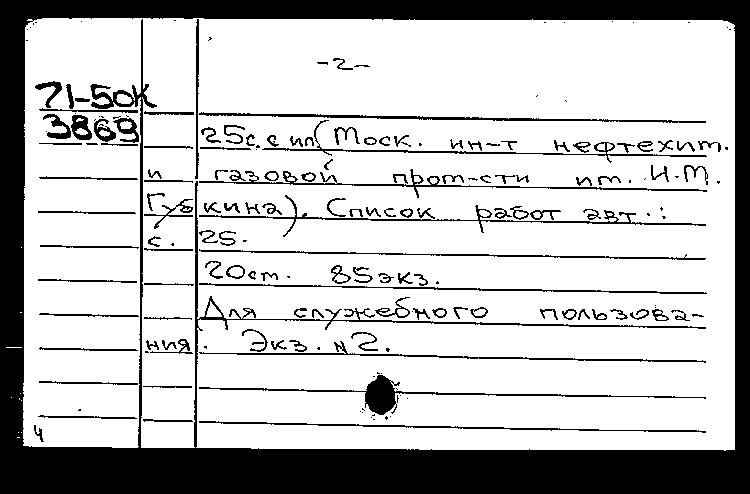 -2-
71-50К
3869
25с. с ил (Моск. ин-т нефтехим.
и газовой пром-сти им. И.М.
Губкина). Список работ авт.:
с. 25.
20ст. 85экз.
Для служебного пользова-
ния. Экз. №2.
4